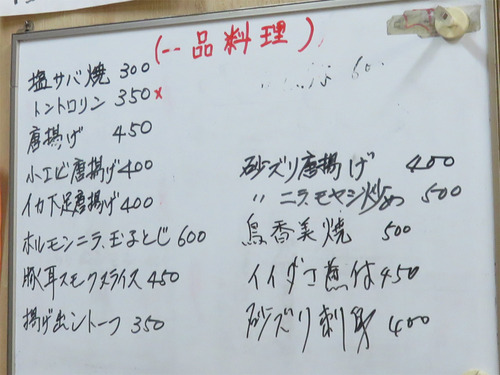 (一品料理)
塩サバ焼 300
トントロリン 350x
唐揚げ 450
小エビ唐揚げ 400
イカ下足唐揚げ 400
ホルモンニラ、玉子とじ 600
豚耳スモークスライス 450
揚げ出しトーフ 350
60
砂ズリ唐揚げ 450
〃 ニラ、モヤシ炒め 500
鳥香美焼 500
イイダコ煮付 450
砂ズリ刺身 400